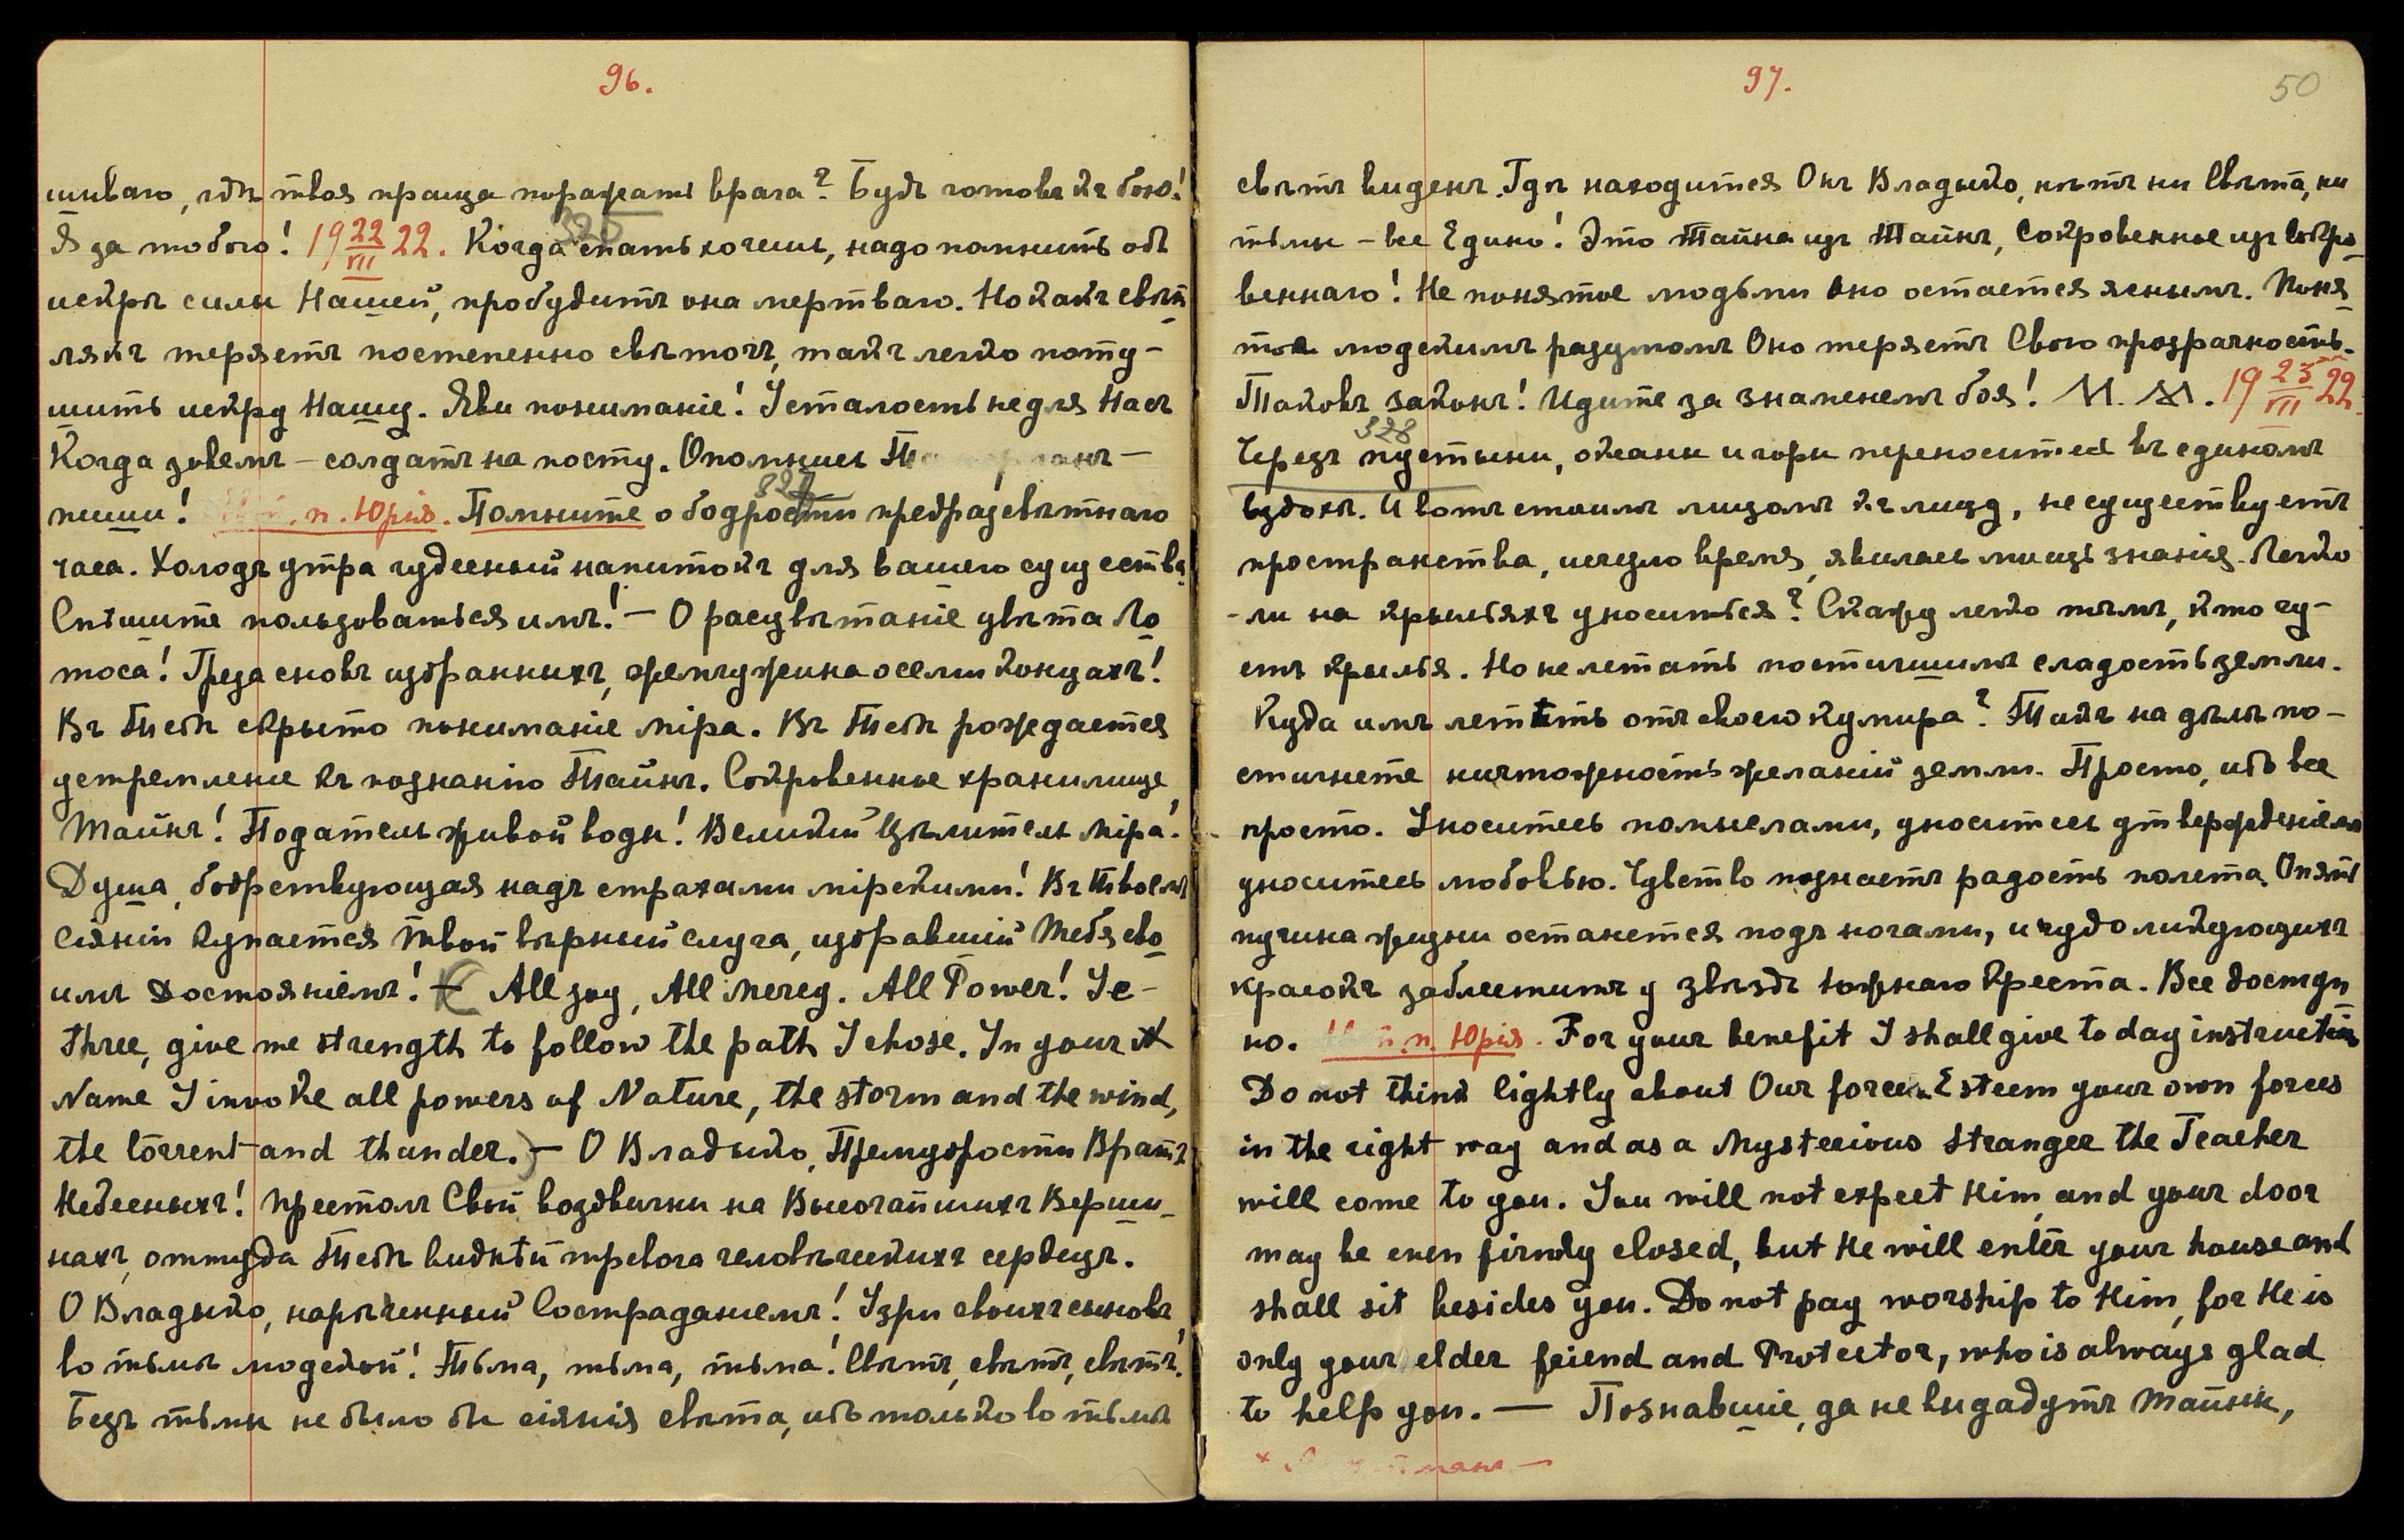 96.
шиваю, гдѣ твоя праща поражать врага? Будь готовъ къ бою!
Я за тобою! 19 22/VII 22. Когда спать хочешь, надо помнить объ
326
искрѣ силы Нашей, пробудитъ она мертваго. Но какъ свѣт
лякъ теряетъ постепенно свѣточъ, такъ легко поту-
шить искру Нашу. Яви пониманіе! Усталость не для Насъ
Когда зовемъ – солдатъ на посту. Опомнись
пиши! п. Юрія. Помните о бодрости предразсвѣтнаго
327
часа. Холодъ утра чудесный напитокъ для вашего существа
Спѣшите пользоваться имъ! – О расцвѣтаніе цвѣта Ло
тоса! Греза сновъ избранныхъ, жемчужина осели концахъ!
Въ Тебѣ скрыто пониманіе міра. Въ Тебѣ рождается
устремленіе къ познанію Тайнъ. Сокровенное хранилище
Тайнъ! Податель живой воды! Великій Цѣлитель міра!
Душа, бодрствующая надъ страхами мірскими! Въ Твоемъ
Сіяніи купается Твой вѣрный слуга, избравшій Тебя сво
имъ Достояніемъ! – All joy, All Mercy. All Power! Ye-
three, give me strength to follow the path I chose. In your
Name I invoke all powers of Nature, the storm and the wind,
the torrent and thunder.) – О Владыко, Премудрости Вратъ
Небесныхъ! Престолъ Свой воздвигни на Высочайшихъ Верши-
нахъ, оттуда Тебѣ виднѣй тревога человѣческихъ сердецъ.
О Владыко, нарѣченный Состраданіемъ! Узри своихъ сыновъ
во тьмѣ людской! Тьма, тьма, тьма! Свѣтъ, свѣтъ, свѣтъ!
Безъ тьмы не было бы сіянія свѣта, ибо только во тьмѣ
97.
50
свѣтъ виденъ. Гдѣ находится Онъ Владыко, нѣтъ ни Свѣта, ни
тьмы – все Едино! Это Тайна изъ Тайнъ, Сокровенное изъ Сокро
веннаго! Не понятое людьми оно остается яснымъ. Поня
тое людскимъ разумомъ Оно теряетъ Свою прозрачность.
Таковъ законъ! Идите за знаменемъ боя! М. М. 19 25/VII 22.
328
Черезъ пустыни, океаны и горы переноситесь въ единомъ
вздохѣ. И вотъ стоимъ лицомъ къ лицу, не существуетъ
пространства, исчезло время, явилась мощь знанія. Легко
-ли на крыльяхъ уноситься? Скажу легко тѣмъ, кто чу-
етъ крылья. Но не летать постигшимъ сладость земли.
Куда имъ летѣть отъ своего кумира? Такъ на дѣлѣ по-
стигнете ничтожность желаній земли. Просто, ибо все
просто. Уноситесь помыслами, уноситесь утвержденіемъ
уноситесь любовью. Чувство познаетъ радость полета. Опять
пучина жизни останется подъ ногами, и чудо ликующихъ
красокъ заблеститъ у звѣздъ Южнаго Креста. Все доступ
но. п. Юрія. For your benefit I shall give to day instruction
Do not think lightly about Our forces. Esteem your own forces
in the right way and as a Mysterious Stranger the Teacher
will come to you. You will not expect Him, and your door
may be even firmly closed, but He will enter your house and
shall sit besides you. Do not pay worship to Him, for He is
only your elder friend and Protector, who is always glad
to help you. – Познавшіе, да не выдадутъ Тайны,